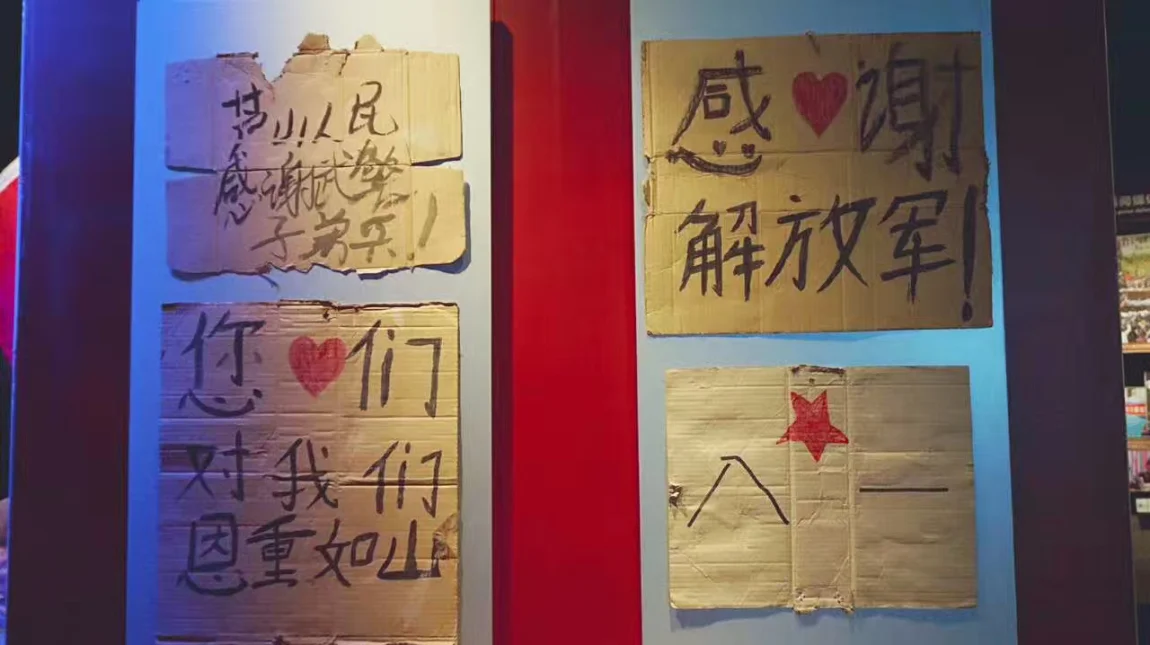 芦山人民
感谢武警
子弟兵！
您们
对我们
恩重如山
感谢
解放军！
八一